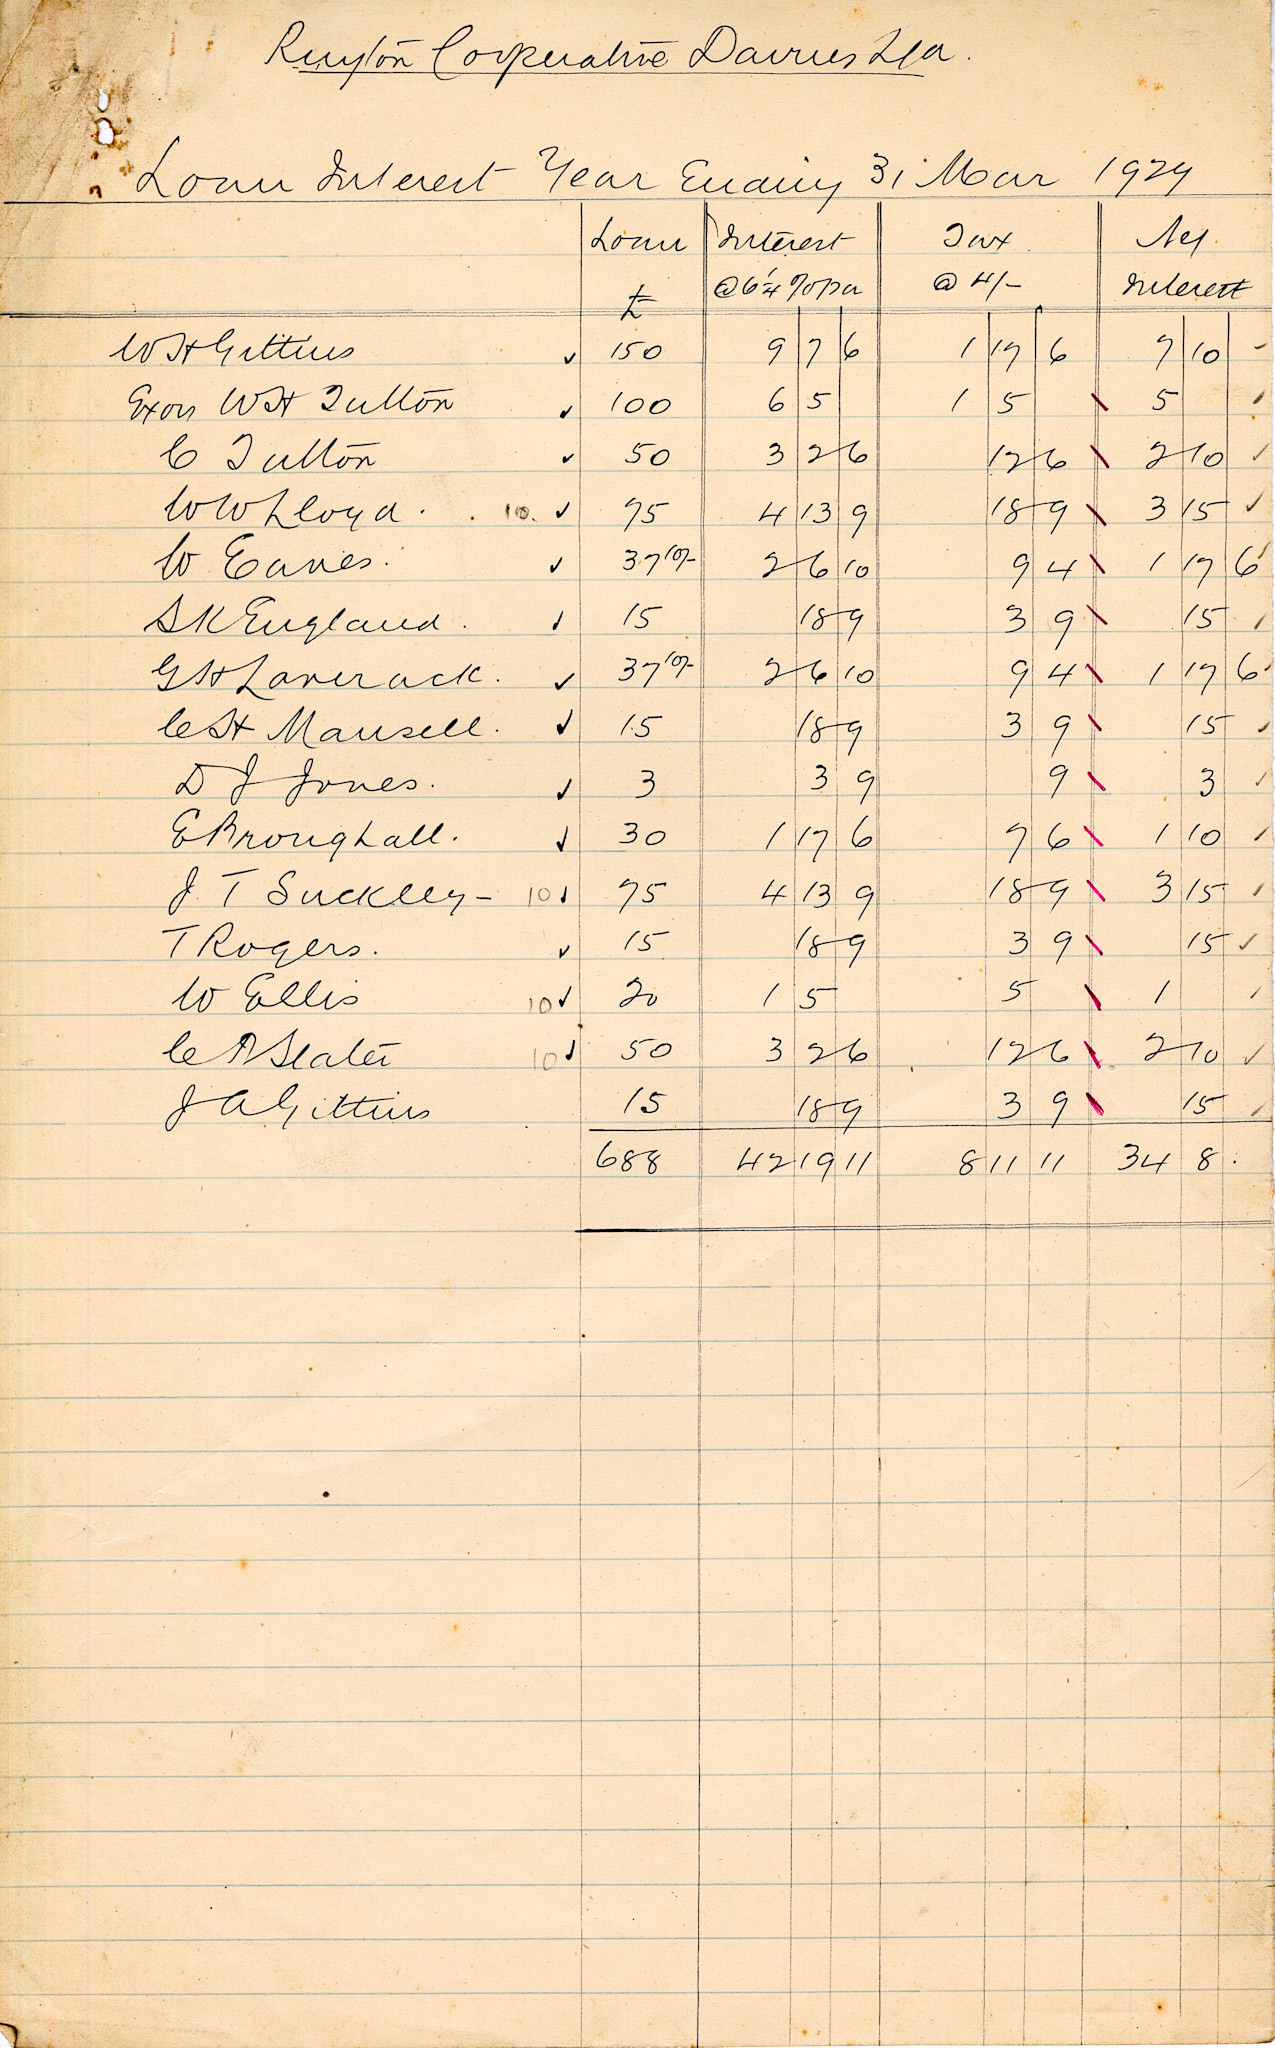 Ruyton Cooperative Dairies Ltd.
Loan Interest Year Ending 31 Mar 1929
Loan Interest Tax Net
£ @ 6¼ % pa @ 4/- Interest
W H Gittins ✓ 150 9 7 6 1 17 6 7 10 -
Exors W H Tutton ✓ 100 6 5 1 5 \ 5 ✓
C Tutton ✓ 50 3 2 6 12 6 \ 2 10 ✓
W W Lloyd. 10. ✓ 75 4 13 9 18 9 \ 3 15 ✓
W Eaves. ✓ 37 10/- 2 6 10 9 4 \ 1 17 6 ✓
S K England. ✓ 15 18 9 3 9 \ 15 ✓
G H Laverack. ✓ 37 10/- 2 6 10 9 4 \ 1 17 6 ✓
C H Mansell. ✓ 15 18 9 3 9 \ 15 ✓
D J Jones. ✓ 3 3 9 9 \ 3 ✓
E Broughall. ✓ 30 1 17 6 7 6 \ 1 10 ✓
J. T Suckley - 10 ✓ 75 4 13 9 18 9 \ 3 15 ✓
T Rogers. ✓ 15 18 9 3 9 \ 15 ✓
W Ellis 10 ✓ 20 1 5 5 \ 1 ✓
C A Slater 10 ✓ 50 3 2 6 12 6 \ 2 10 ✓
J A Gittins 15 18 9 3 9 \ 15 ✓
688 42 19 11 8 11 11 34 8 .